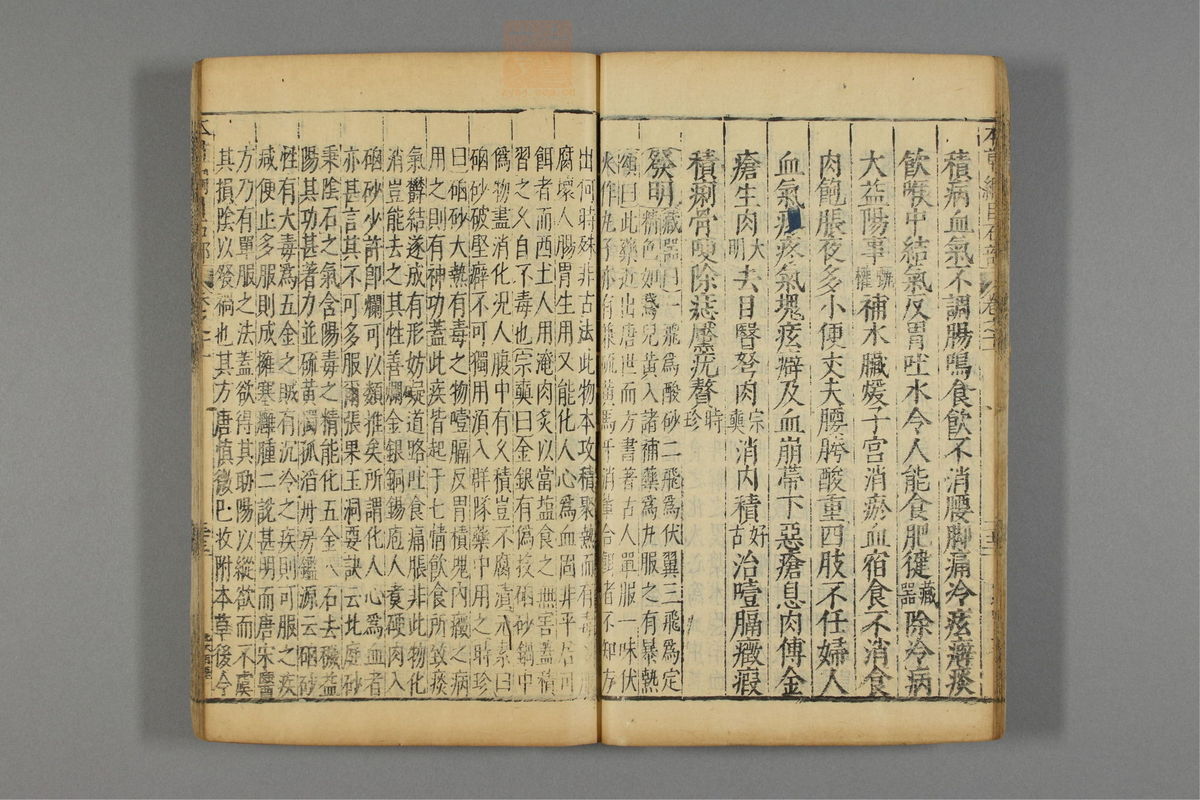 積病血氣不調腸鳴食飲不消腰脚痛冷痃癖痰
飲喉中結氣反胃吐水令人能食肥健藏器除冷病
大益陽事甄權補水臟煖子宮消瘀血宿食不消食
肉飽脹夜多小便丈夫腰胯酸重四肢不任婦人
血氣疼氣塊痃癖及血崩帶下惡瘡息肉傅金
瘡生肉大明去目瞖弩肉宗奭消內積好古治噎膈癥瘕
積痢骨哽除痣黶疣贅時珍
發明藏器曰一飛為酸砂二飛為伏翼三飛為定
精色如鵞兒黃入諸補藥為丸服之有暴熱
頌曰此藥近出唐世而方書著古人單服一味伏
火作丸子亦有兼硫黃馬牙消輩合餌者不知方
出何時殊非古法此物本攻積聚熱而有毒
腐壞人腸胃生用又能化人心為血固非平居可
餌者而西土人用淹肉炙以當鹽食之無害蓋積
習之久自不毒也宗奭曰金銀有偽投硇砂鍋中
偽物盡消化况人腹中有久積豈不腐潰元素曰
硇砂破堅癖不可獨用須入群隊藥中用之時珍
曰硇砂大熱有毒之物噎膈反胃積塊內癥之病
用之則有神功蓋此疾皆起于七情飲食所致痰
氣鬱結遂成有形妨礙道路吐食痛脹非此物化
消豈能去之其性善爛金銀銅錫庖人煑硬肉入
硇砂少許卽爛可以類推矣所謂化人心為血者
亦甚言其不可多服爾張果玉洞要訣云北庭砂
秉陰石之氣含陽毒之精能化五金八石去穢益
陽其功甚著力並硫黃獨孤滔丹房鑑源云硇砂
性有大毒為五金之賊有沉冷之疾則可服之疾
減便止多服則成擁塞癰腫二說甚明而唐宋醫
方乃有單服之法蓋欲得其助陽以縱欲而不虞
其損陰以發禍也其方唐慎微巳收附本草後今